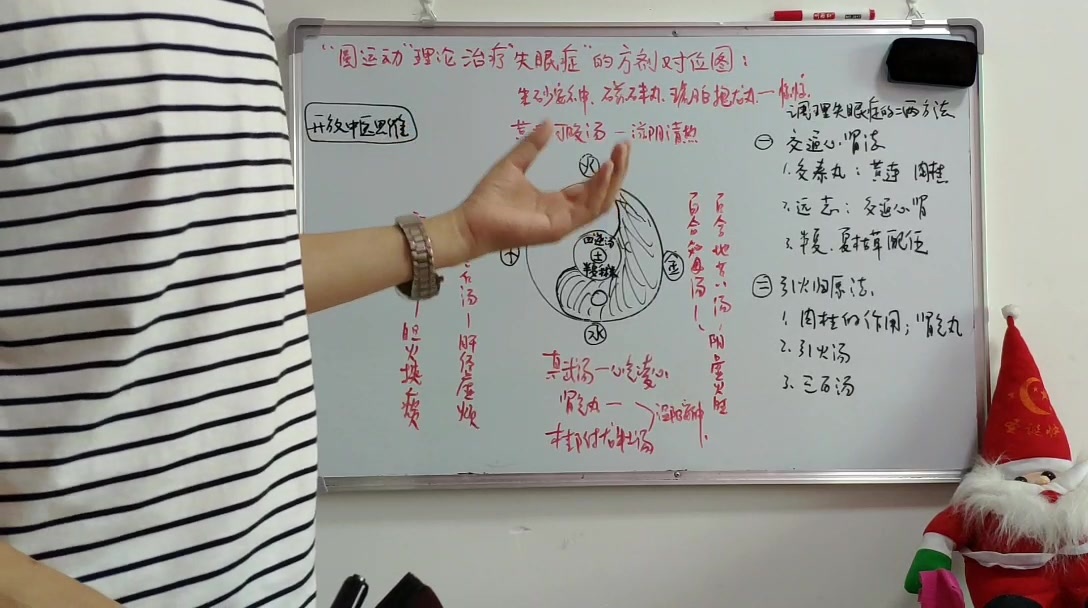 "圆运动"理论治疗"失眠症"的方剂对位图:
开放中医思维
黄 阿胶汤—滋阴清热
火
木
金
四逆汤
土
水
后汤—肝经虚烦
—胆火扰痰
百合地黄汤、阴虚火旺
百合知母汤—
真武汤—心气凌心
肾气丸—
温阳安神
桂附龙牡汤
调理失眠症的二两方法
一 交通心肾法
1.交泰丸:黄连 肉桂
2.远志:交通心肾
3.半夏、夏枯草配伍
二 引火归原法、
1.肉桂的作用;肾气丸
2.引火汤
3.三石汤
圣诞快